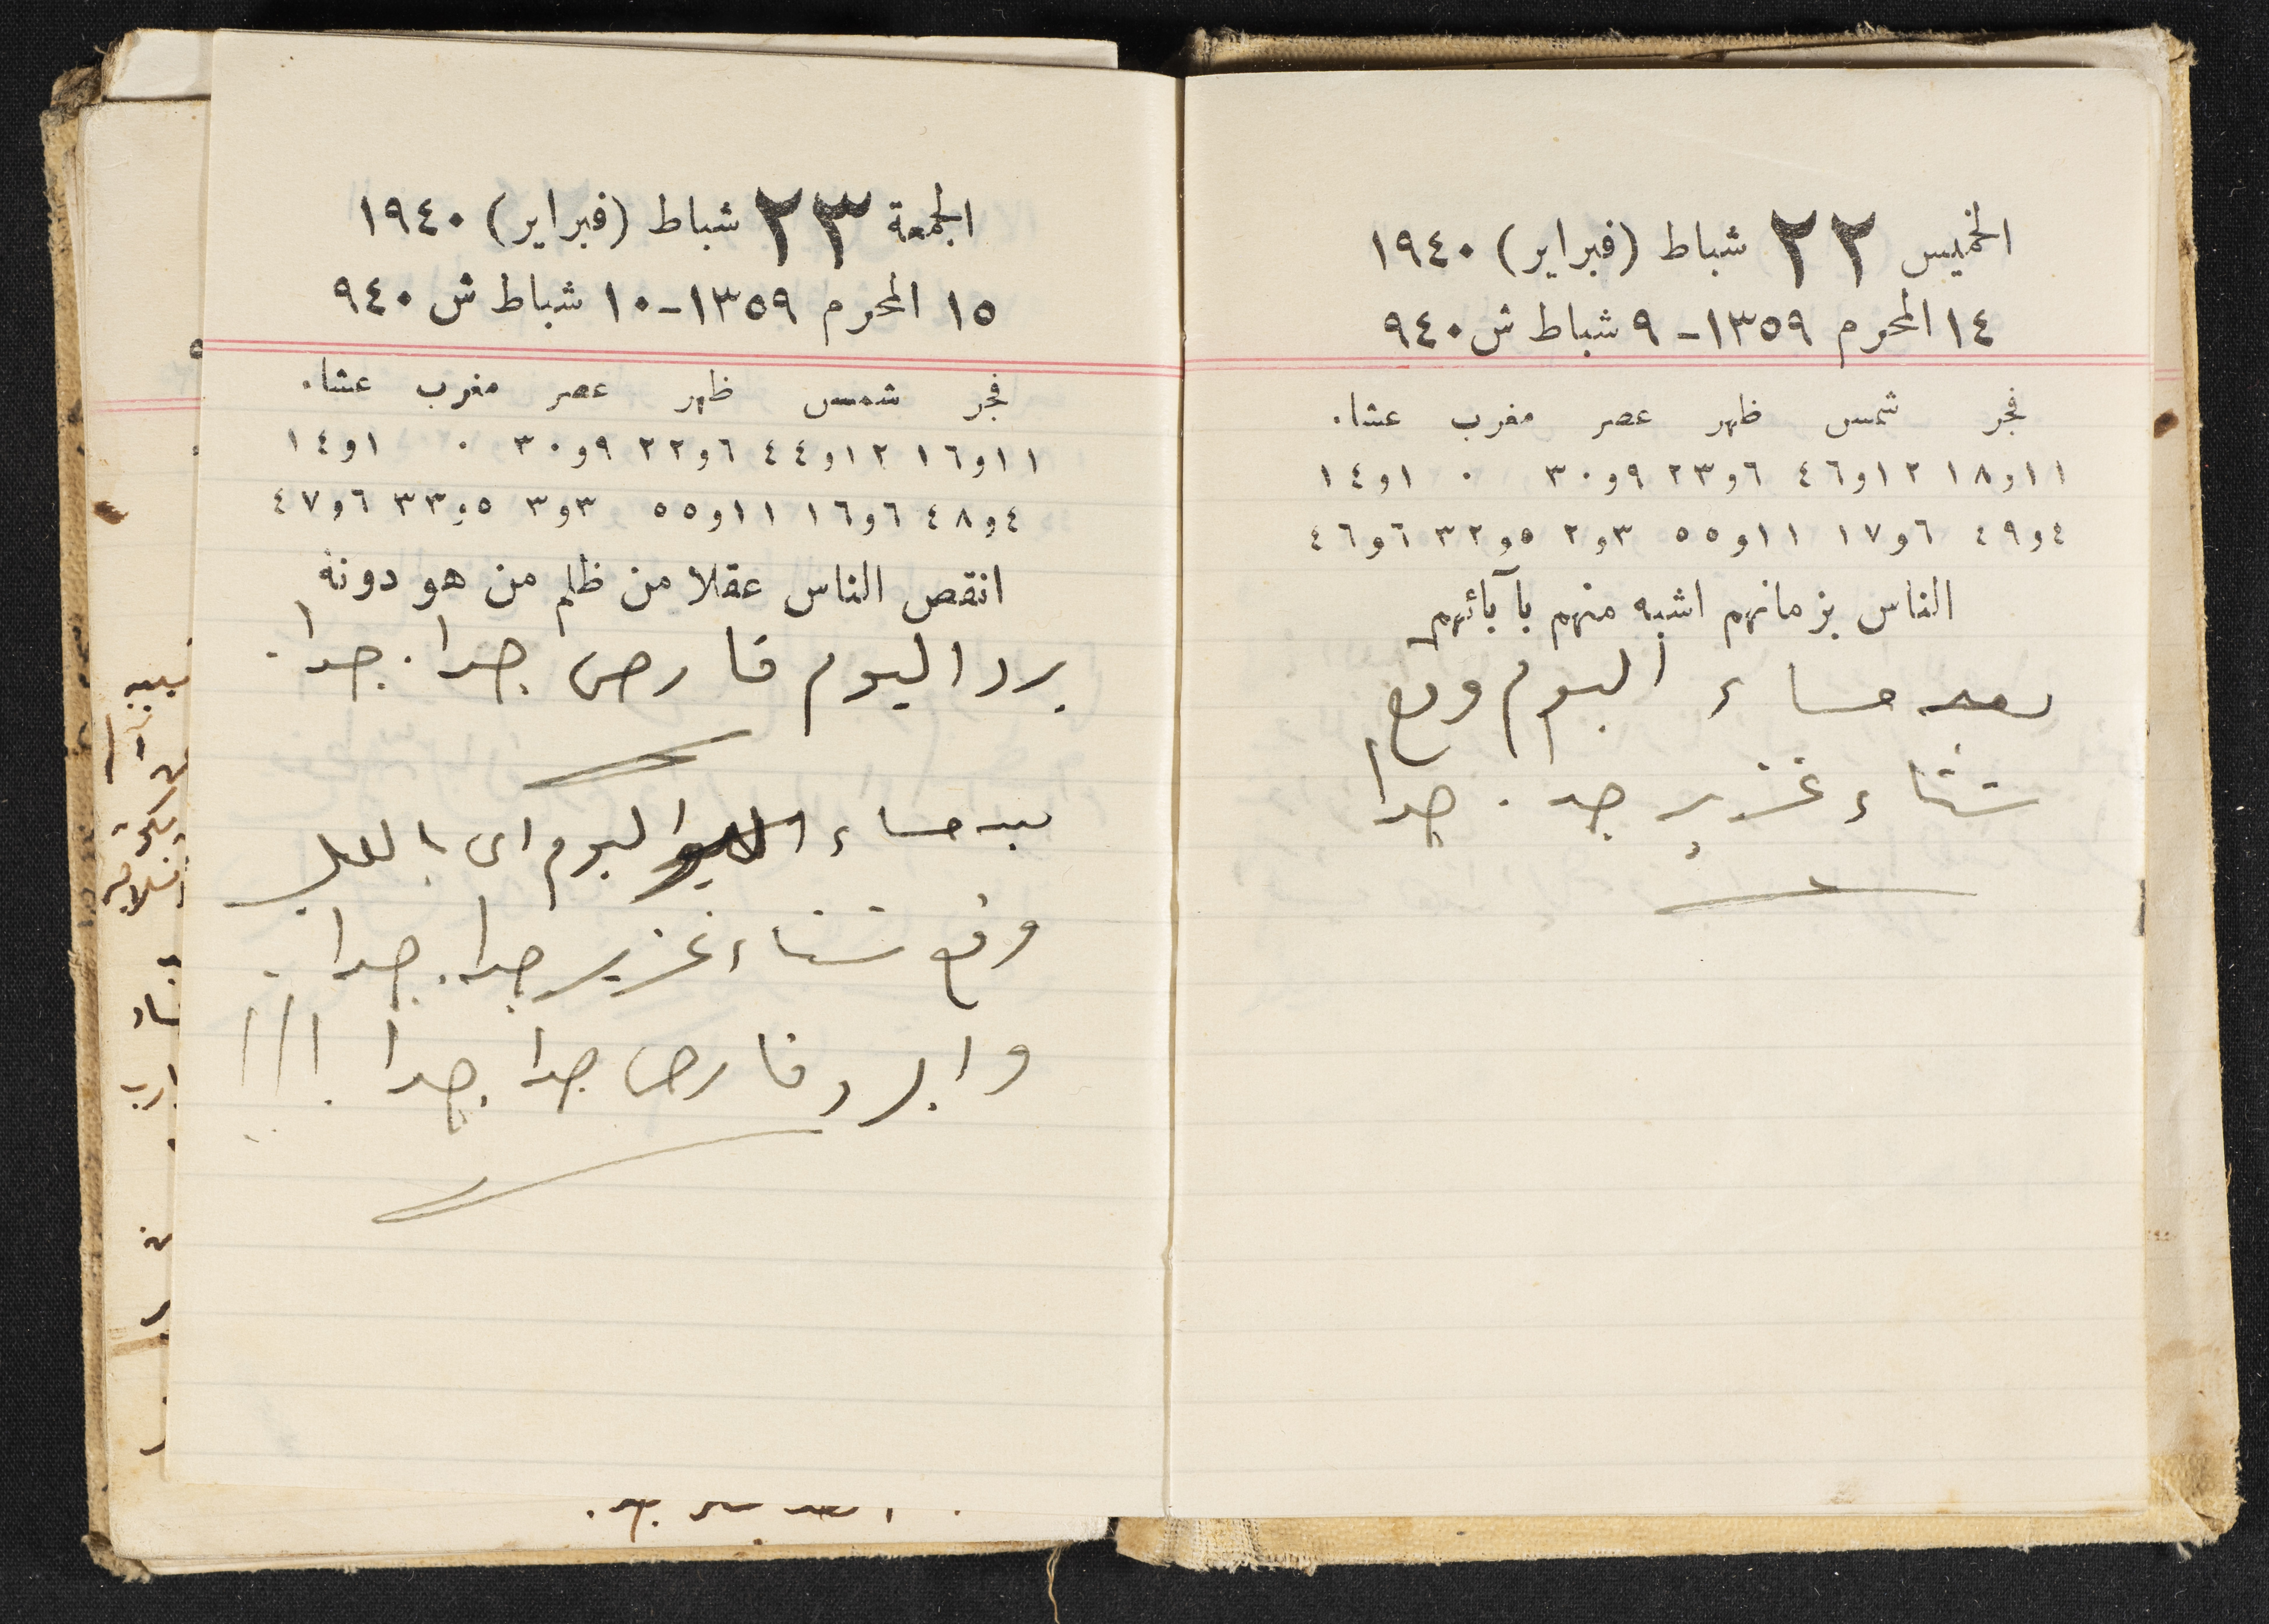 الخميس ٢٢ شباط (فبراير) ١٩٤٠
١٤ المحرم ١٣٥٩ - ٩ شباط ش ٩٤٠
فجر شمس ظهر عصر مغرب عشاء
١١و١٨ ١٢و٤٦ ٦و٢٣ ٩و٣٠ ٠ ١و١٤
٤و٤٩ ٦و١٧ ١١و٥٥ ٣و٢ ٥و٣٢ ٦و٤٦
الناس بزمانهم اشبه منهم بآبائهم
بعد مساء اليوم وقع
شتاء غزير جد . جدا
الجمعة ٢٣ شباط (فبراير) ١٩٤٠
١٥ المحرم ١٣٥٩ - ١٠ شباط ش ٩٤٠
فجر شمس ظهر عصر مغرب عشاء
١١و١٦ ١٢و٤٤ ٦و٢٢ ٩و٣٠ ٠ ١و١٤
٤و٤٨ ٦و١٦ ١١و٥٥ ٣و٣ ٥و٣٣ ٦و٤٧
انقص الناس عقلا من ظلم من هو دونه
برد اليوم قارص جدا . جدا .
مساء اليوم اى بالليل
وقع شتاء غزير جدا . جدا .
وابرد قارص جدا جدا !!!